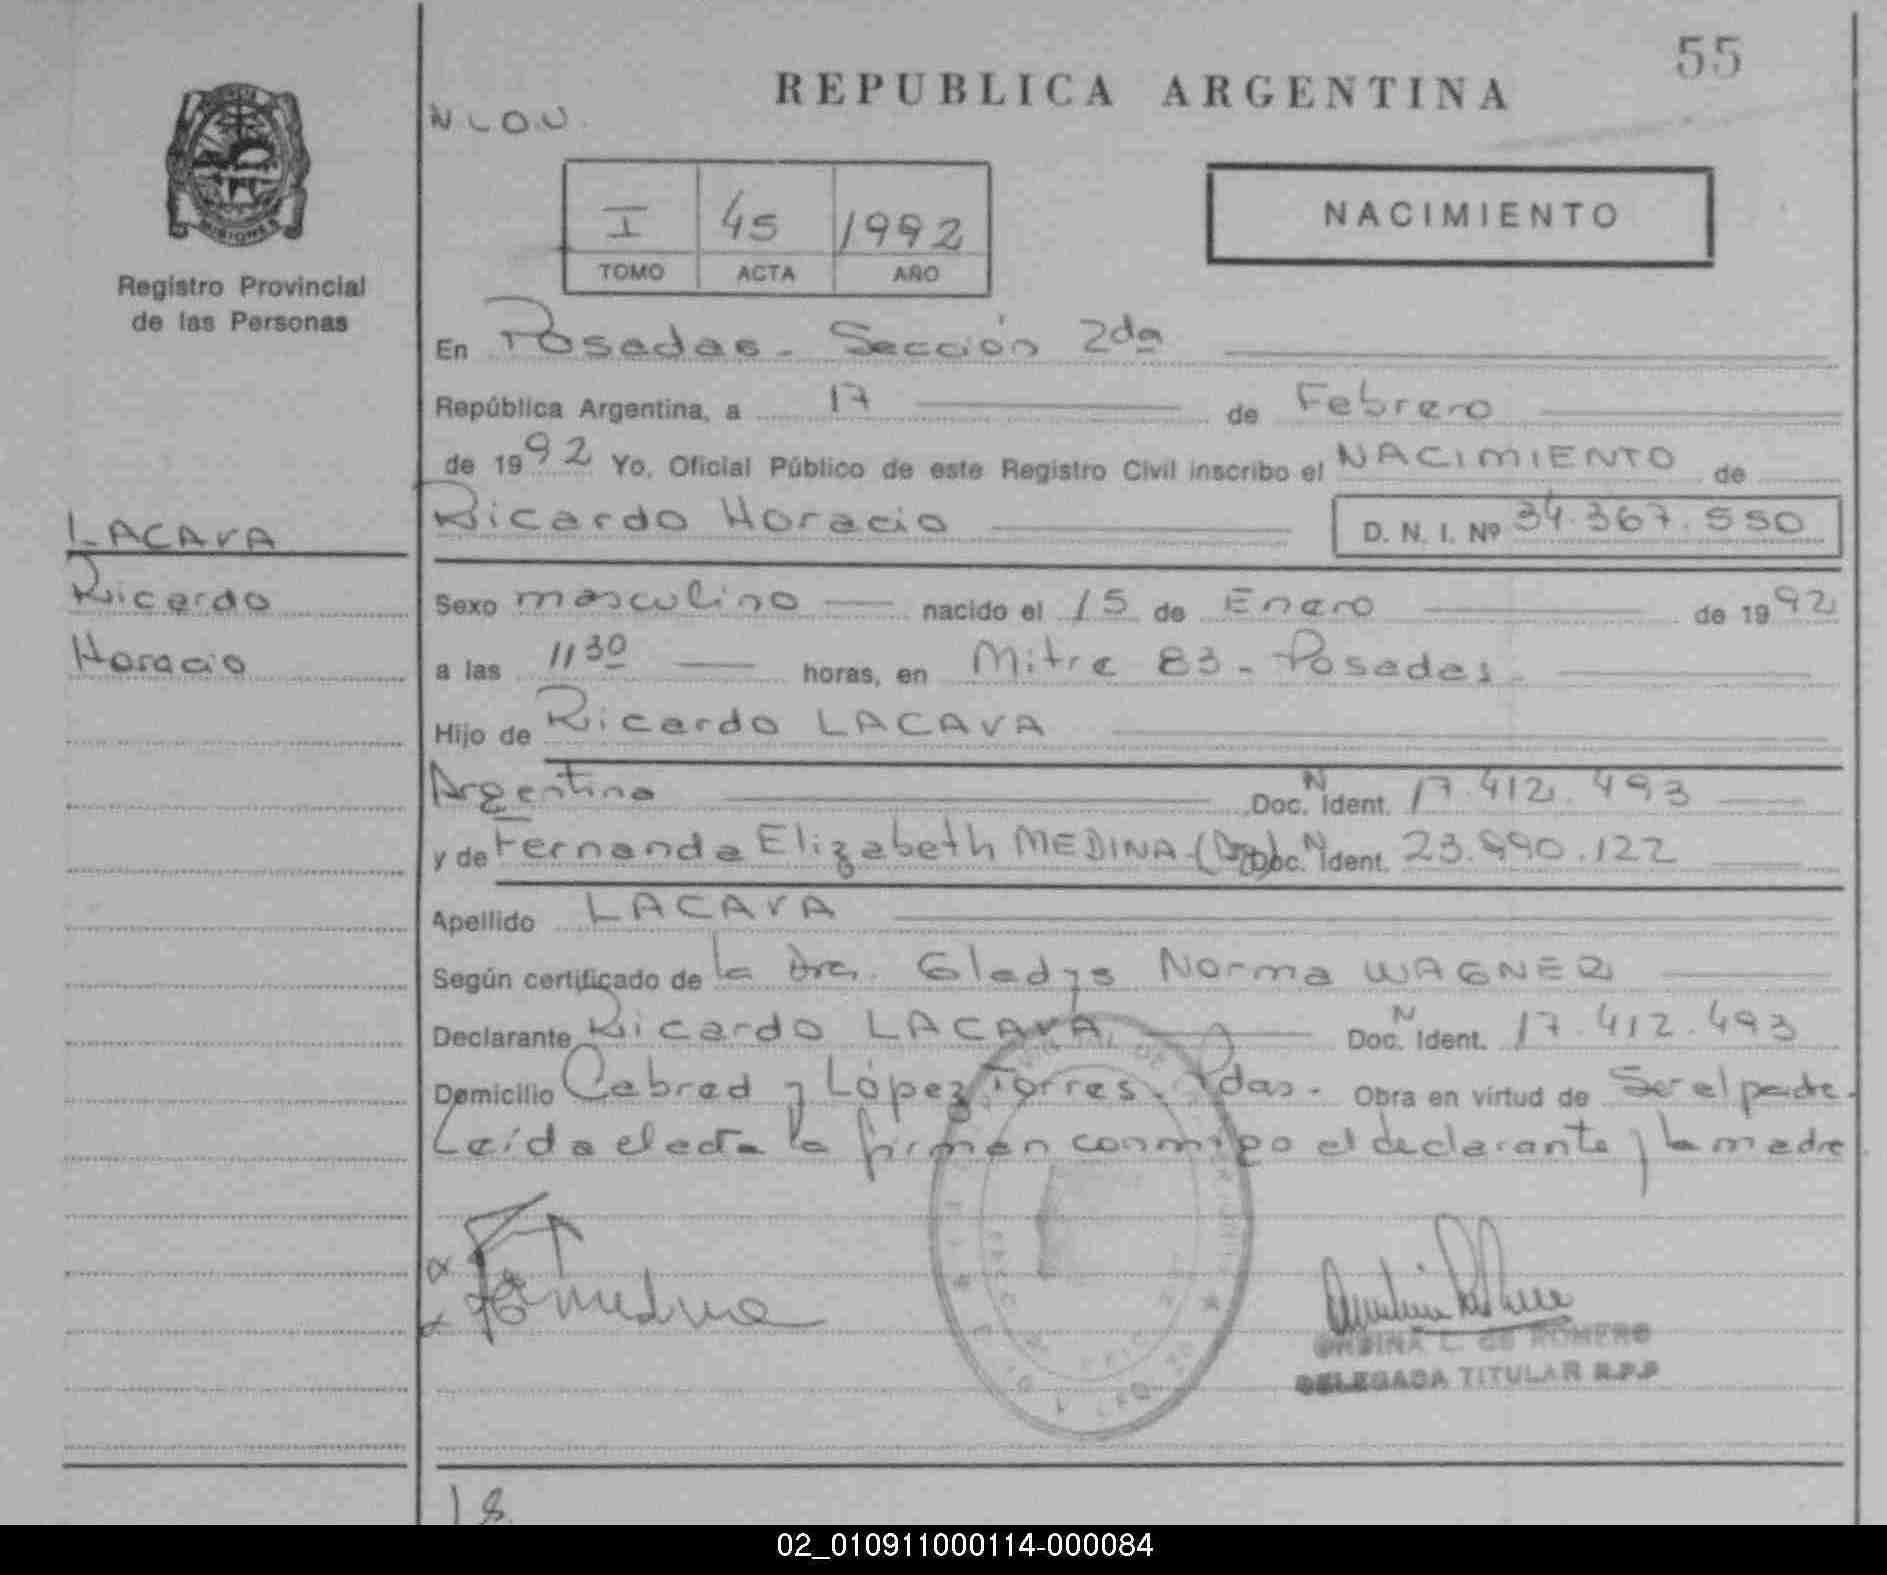 55
REPUBLICA ARGENTINA
N L O U.
MISIONES
Registro Provincial
de las Personas
I 45 1992
TOMO ACTA AÑO
NACIMIENTO
En Posadas - Sección 2da
República Argentina, a 17 de Febrero
de 1992 Yo, Oficial Público de este Registro Civil inscribo el NACIMIENTO de
Ricardo Horacio D. N. I. Nº 34.367.550
LACAVA
Ricardo
Horacio
Sexo masculino nacido el 15 de Enero de 1992
a las 11 30 horas, en Mitre 83 - Posadas -
Hijo de Ricardo LACAVA
Argentino Doc. N Ident. 17.412.493
y de Fernanda Elizabeth MEDINA - (Arg) Doc. N Ident. 23.990.122
Apellido LACAVA
Según certificado de la Dra. Gladys Norma WAGNER
Declarante Ricardo LACAVA Doc. N Ident. 17.412.493
Domicilio Cabred y López Torres - Pdas - Obra en virtud de Ser el padre -
Leída el acta la firman conmigo el declarante y la madre
DE ROMERO
DELEGADA TITULAR R.P.P
02_010911000114-000084